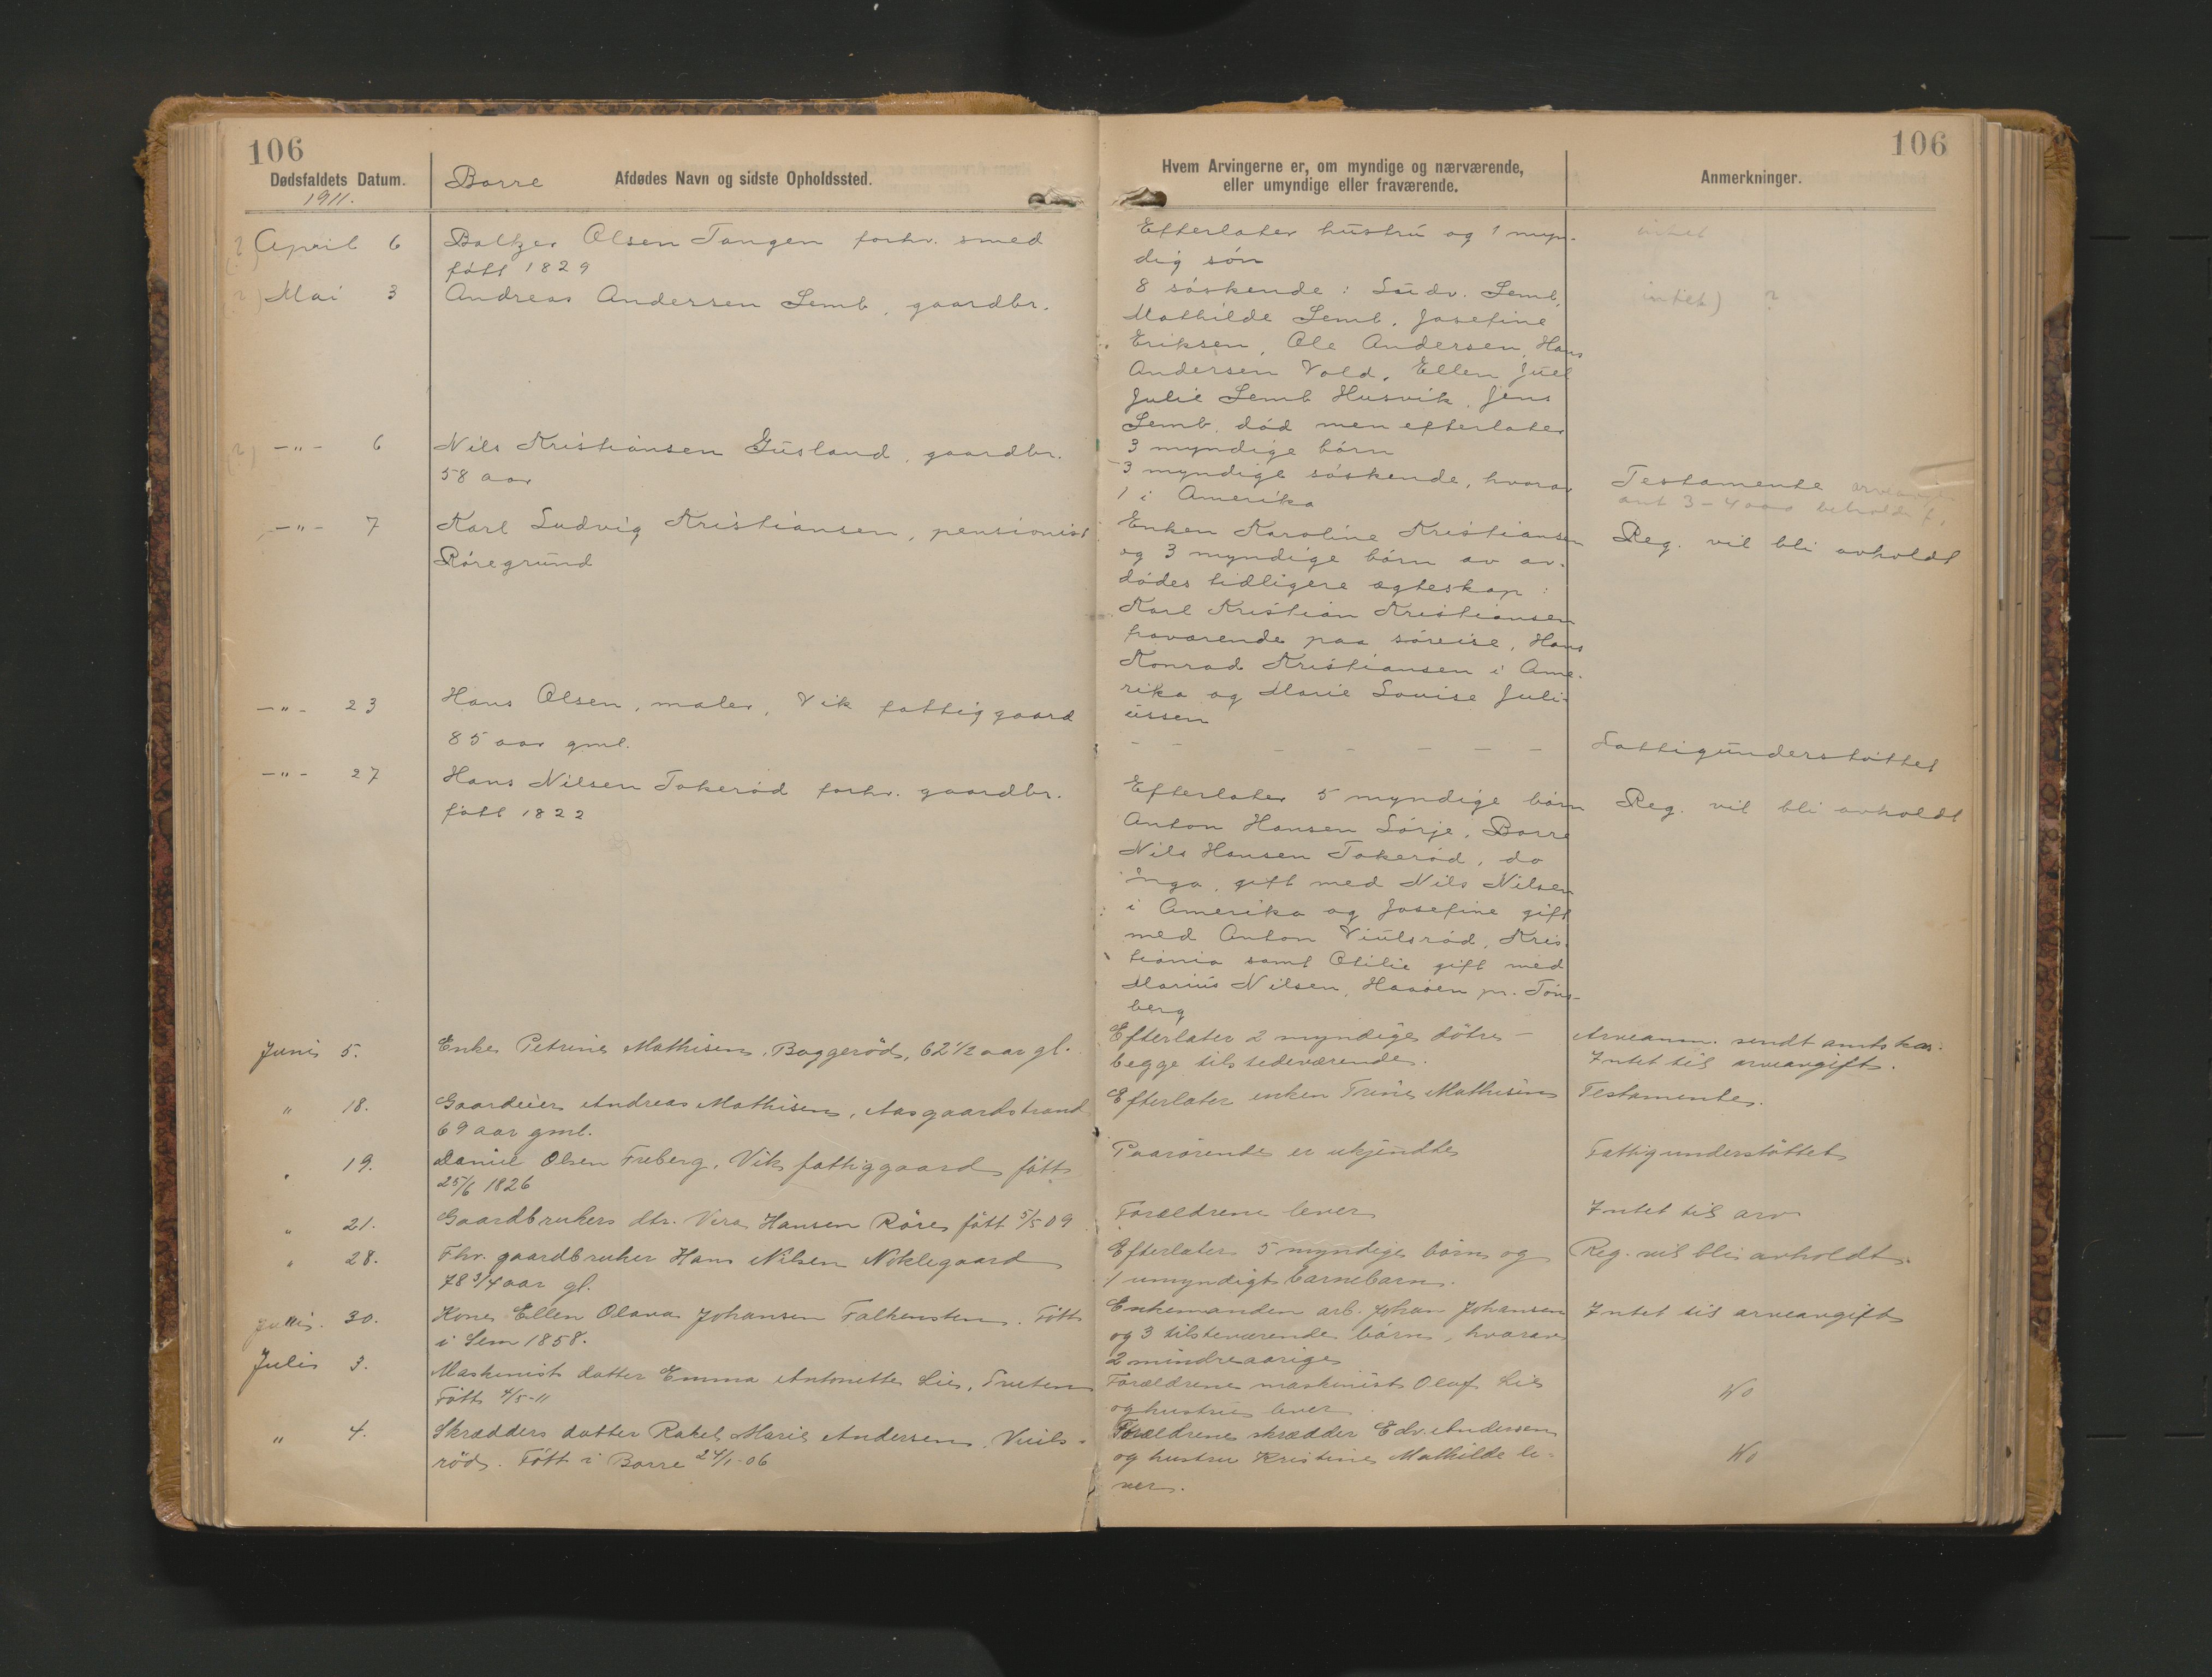 106
Dødsfaldets Datum.
1911.
Borre
Afdødes Navn og sidste Opholdssted.
April 6
Baltzer Olsen Tangen forhv. smed
født 1829
Mai 3
Andreas Andersen Semb, gaardbr.
-"- 6
Nils Kristiansen Gusland, gaardbr.
58 aar
-"- 7
Karl Ludvig Kristiansen, pensionist
Röregrund
-"- 23
Hans Olsen, maler, Vik fattiggaard
85 aar gml.
-"- 27
Hans Nilsen Tokeröd forhv. gaardbr.
født 1822
Juni 5.
Enke Petrine Mathisen, Baggeröd, 62 1/2 aar gl.
" 18.
Gaardeier Andreas Mathisen, Aasgaardstrand
69 aar gml.
" 19.
Daniel Olsen Freberg, Vik fattiggaard født
25/6 1826
" 21.
Gaardbrukers dtr. Vera Hansen Röre født 5/5 09
" 28.
Fhv. gaardbruker Hans Nilsen Nöklegaard
78 3/4 aar gl.
30.
Kone Ellen Olava Johansen Falkensten. Född
i Sem 1858.
Juli 3.
Maskinist datter Emma Antonette Lie, Tveten
Född 4/5-11
" 4.
Skrædders datter Rakel Marie Andersen, Viuls-
röd. Född i Borre 24/1-06
106
Hvem Arvingerne er, om myndige og nærværende,
eller umyndige eller fraværende.
Anmerkninger.
Efterlater hustru og 1 myn-
dig sön
intet
8 söskende: Ludv. Semb,
intet) ?
Mathilde Semb, Josefine
Eriksen, Ole Andersen, Hans
Andersen Vold, Ellen Juel
Julie Semb Husvik, Jens
Semb, död men efterlater
3 myndige börn
3 myndige söskende, hvorav
1 i Amerika
Testamente
ant 3-4000
Enken Karoline Kristiansen
Reg. vil bli avholdt
og 3 myndige börn av av-
dödes tidligere ægteskap:
Karl Kristian Kristiansen
fraværende paa söreise, Hans
Konrad Kristiansen i Ame-
rika og Marie Louise Juli-
ussen
- - - - - - -
Fattigunderstöttet
Efterlater 5 myndige börn
Reg. vil bli avholdt
Anton Hansen Sörje, Borre
Nils Hansen Tokeröd, do
Inga, gift med Nils Nilsen
i Amerika og Josefine gift
med Anton Viulsröd, Kris-
tiania samt Otilie gift med
Marius Nilsen, Haaöen pr. Töns-
berg
Efterlater 2 myndige dötre -
Arveanm. sendt amtskas.
begge tilstedeværende.
Intet til arveavgift.
Efterlater enken Trine Mathisen
Testamente.
Paarörende er ukjendte
Fattigunderstöttet
Forældrene lever
Intet til arv
Efterlater 5 myndige börn og
Reg. vil bli avholdt.
1 umyndigt barnebarn.
Enkemanden arb. Johan Johansen
Intet til arveavgift
og 3 tilsteværende börn, hvorav
2 mindreaarige
Forældrene maskinist Oluf Lie
og hustru lever
do
Forældrene skrædder Edv. Andersen
og hustru Kristine Mathilde le-
do
ver.